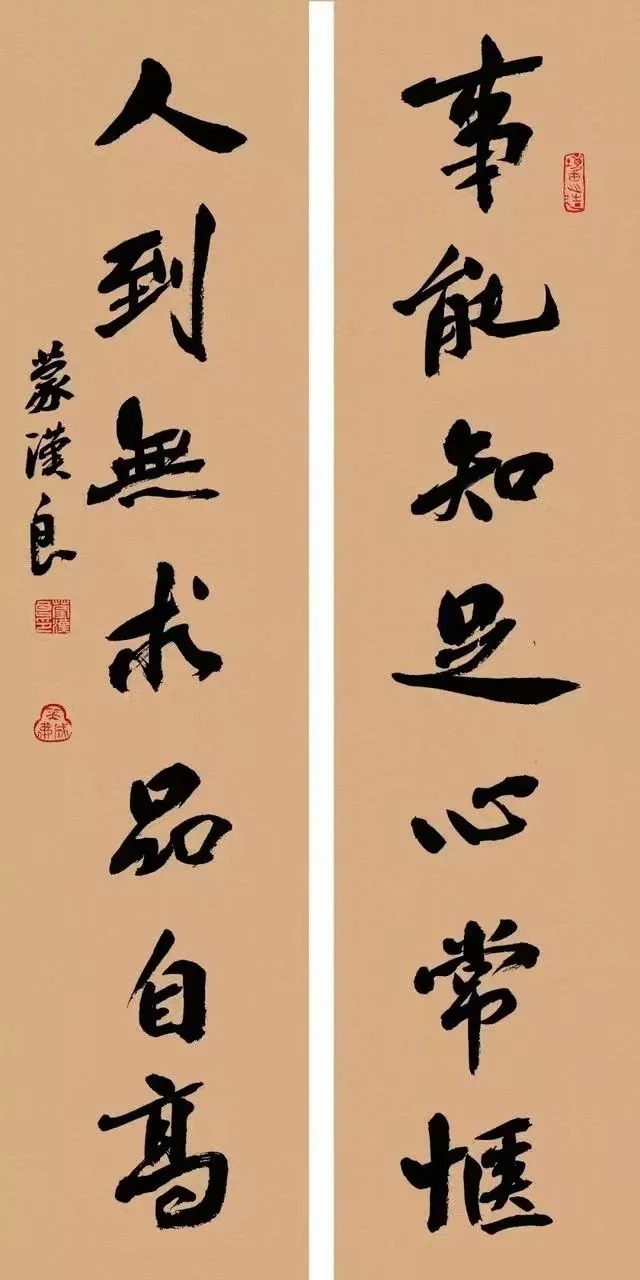 事能知足心常惬
人到無求品自高
蒙漢良